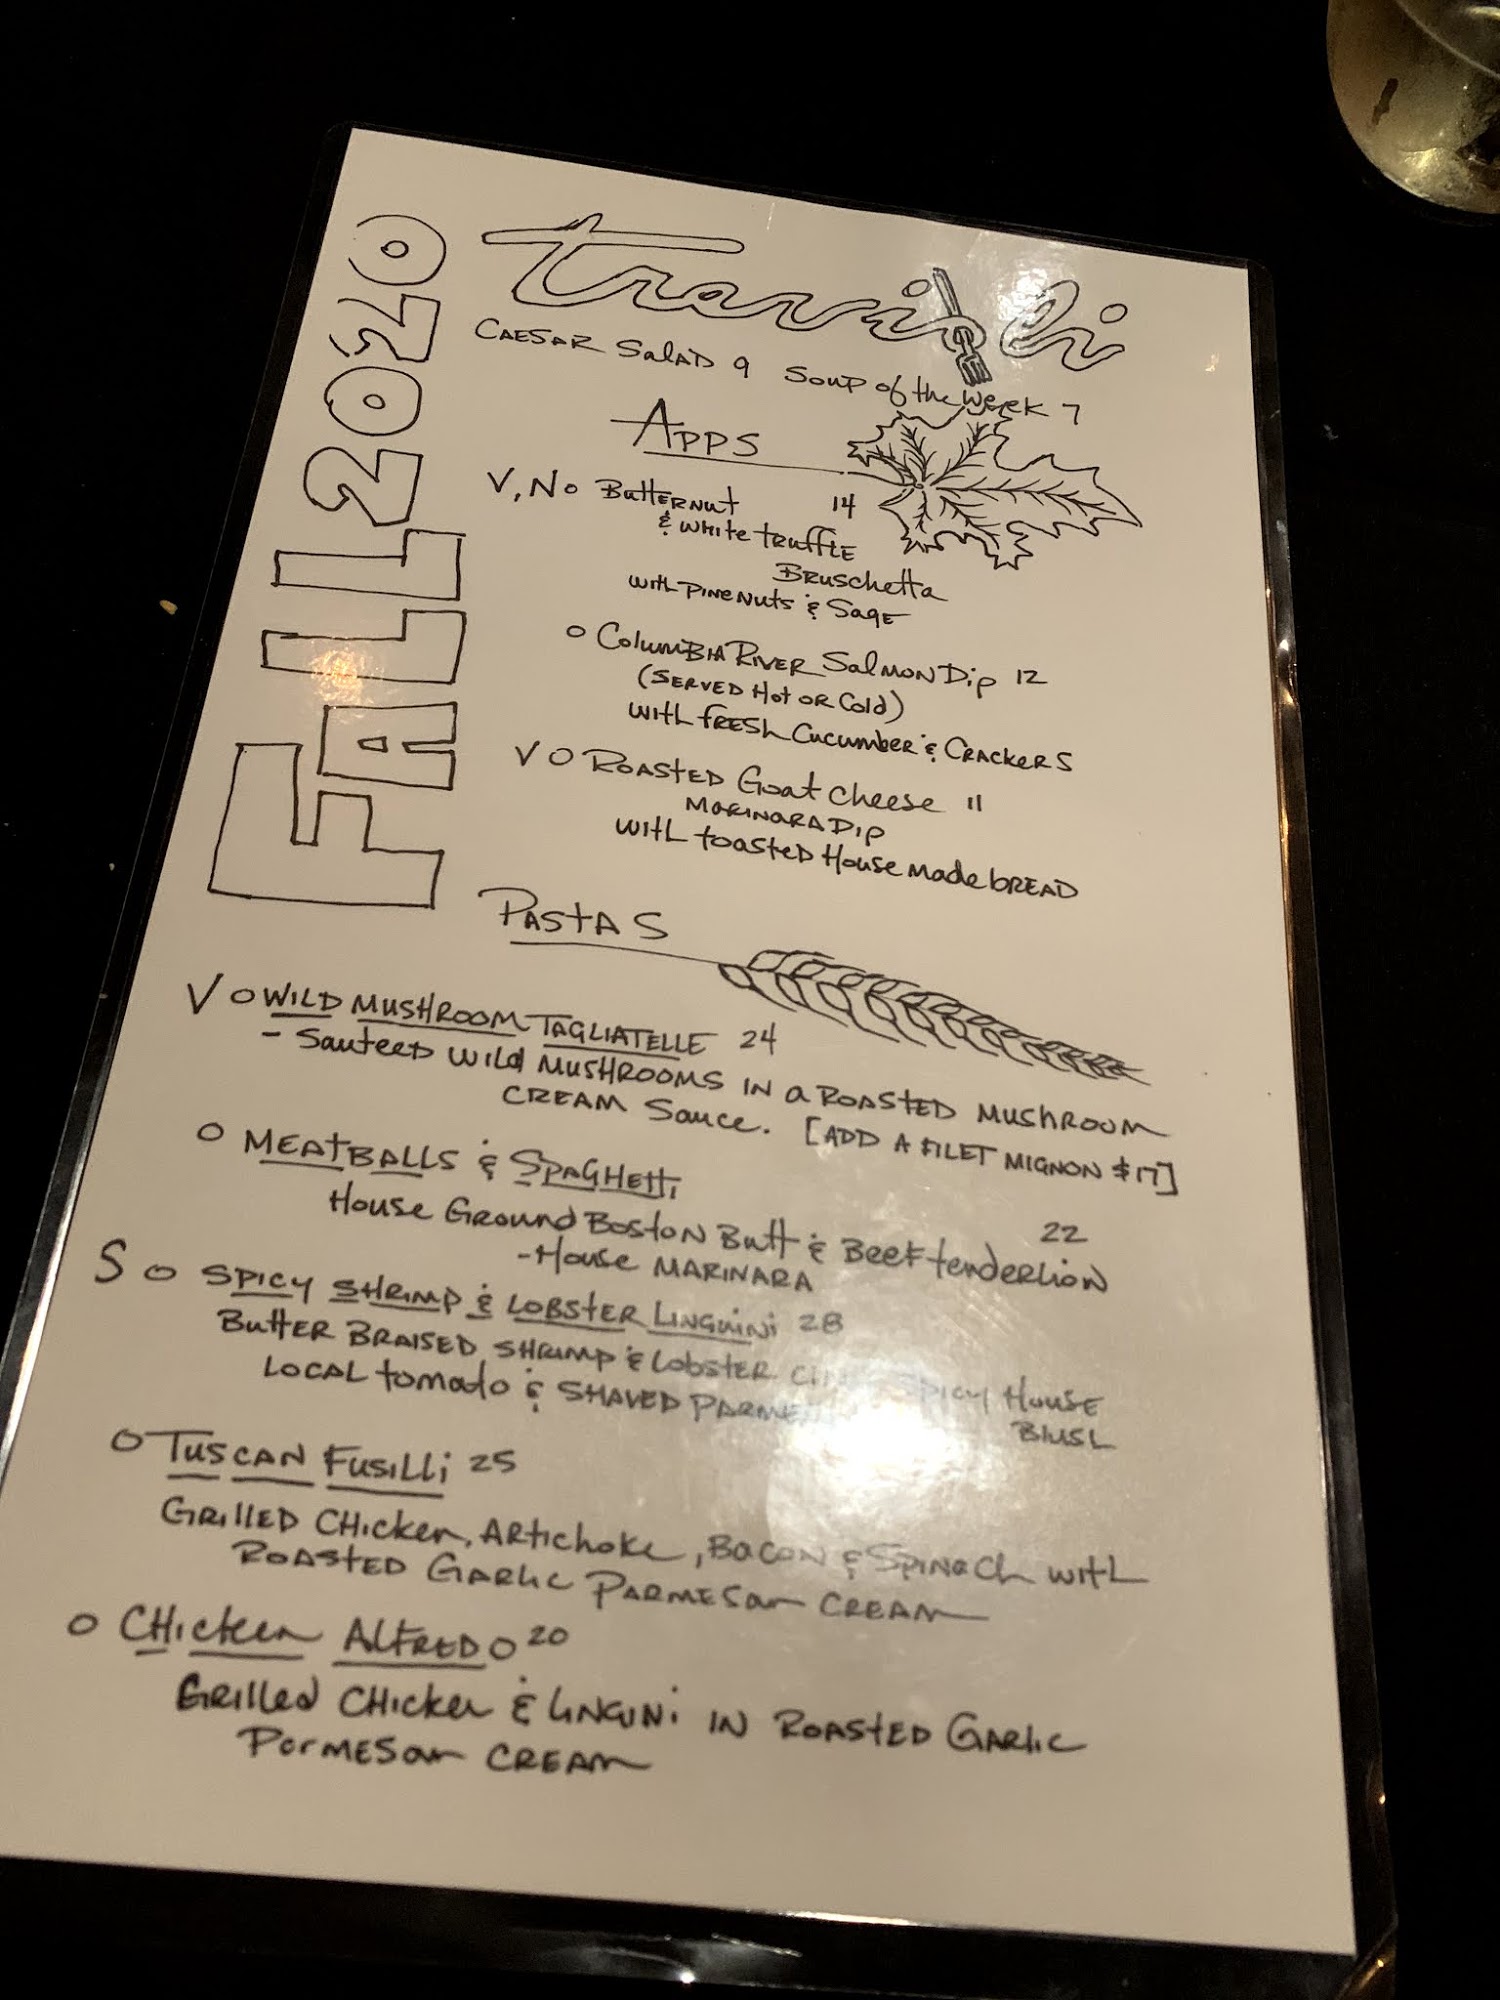 FALL 2020
Travioli
CAESAR SALAD 9 SOUP of the WEEK 7
APPS
V, No BUTTERNUT 14
& WHITE TRUFFLE
BRUSCHETTA
WITH PINENUTS & SAGE
o COLUMBIA RIVER SALMON DIP 12
(SERVED HOT OR COLD)
WITH FRESH CUCUMBER & CRACKERS
V O ROASTED GOAT CHEESE 11
MARINARA DIP
WITH TOASTED HOUSE MADE BREAD
PASTAS
V O WILD MUSHROOM TAGLIATELLE 24
- SAUTEED WILD MUSHROOMS IN a ROASTED MUSHROOM
CREAM SAUCE. [ADD A FILET MIGNON $17]
O MEATBALLS & SPAGHETTI
HOUSE GROUND BOSTON BUTT & BEEF TENDERLION 22
-HOUSE MARINARA
S O SPICY SHRIMP & LOBSTER LINGUINI 28
BUTTER BRAISED SHRIMP & LOBSTER SPICY HOUSE
BLUSH
LOCAL TOMATO & SHAVED
O TUSCAN FUSILLI 25
GRILLED CHICKEN, ARTICHOKE, BACON & SPINACH WITH
ROASTED GARLIC PARMESAN CREAM
O CHICKEN ALFREDO 20
GRILLED CHICKEN & LINGUNI IN ROASTED GARLIC
PARMESAN CREAM